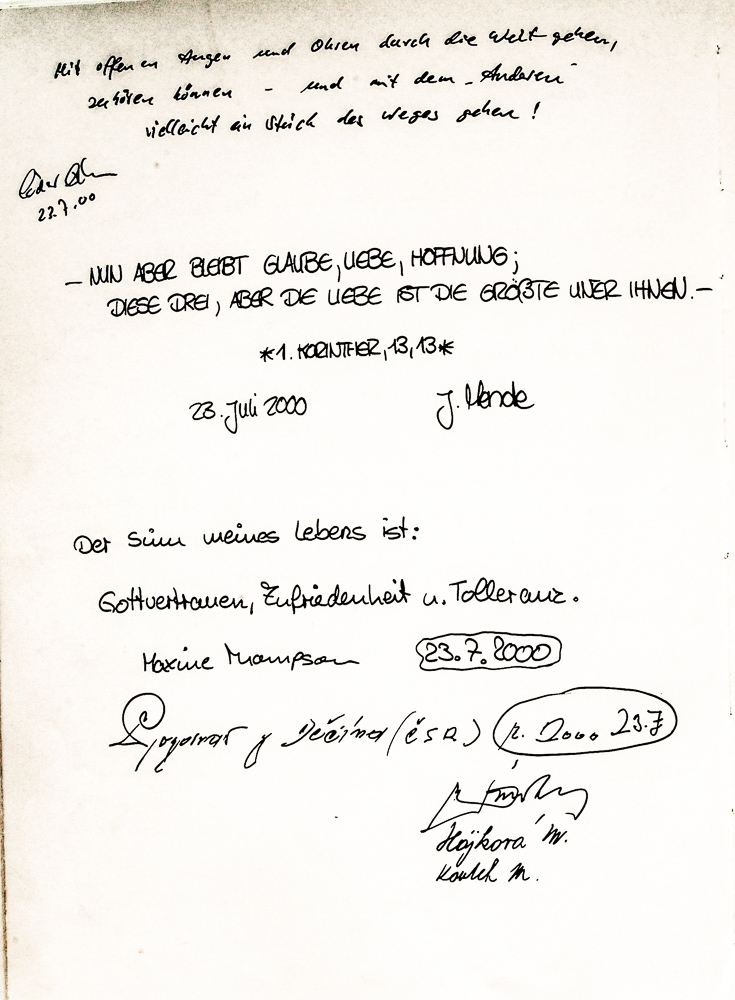 Mit offenen Augen und Ohren durch die Welt gehen,
zuhören können - und mit dem „Anderen"
vielleicht ein Stück des Weges gehen!
23.7.00
— NUN ABER BLEIBT GLAUBE, LIEBE, HOFFNUNG;
DIESE DREI, ABER DIE LIEBE IST DIE GRÖßTE UNER IHNEN. —
*1. KORINTHER, 13, 13*
23. Juli 2000 J. Mende
Der Sinn meines Lebens ist:
Gottvertrauen, Zufriedenheit u. Tolleranz.
Maxine Thompson 23.7.2000
Děčína (ČSR) r. 2000 23.7
Hájková M.
M.